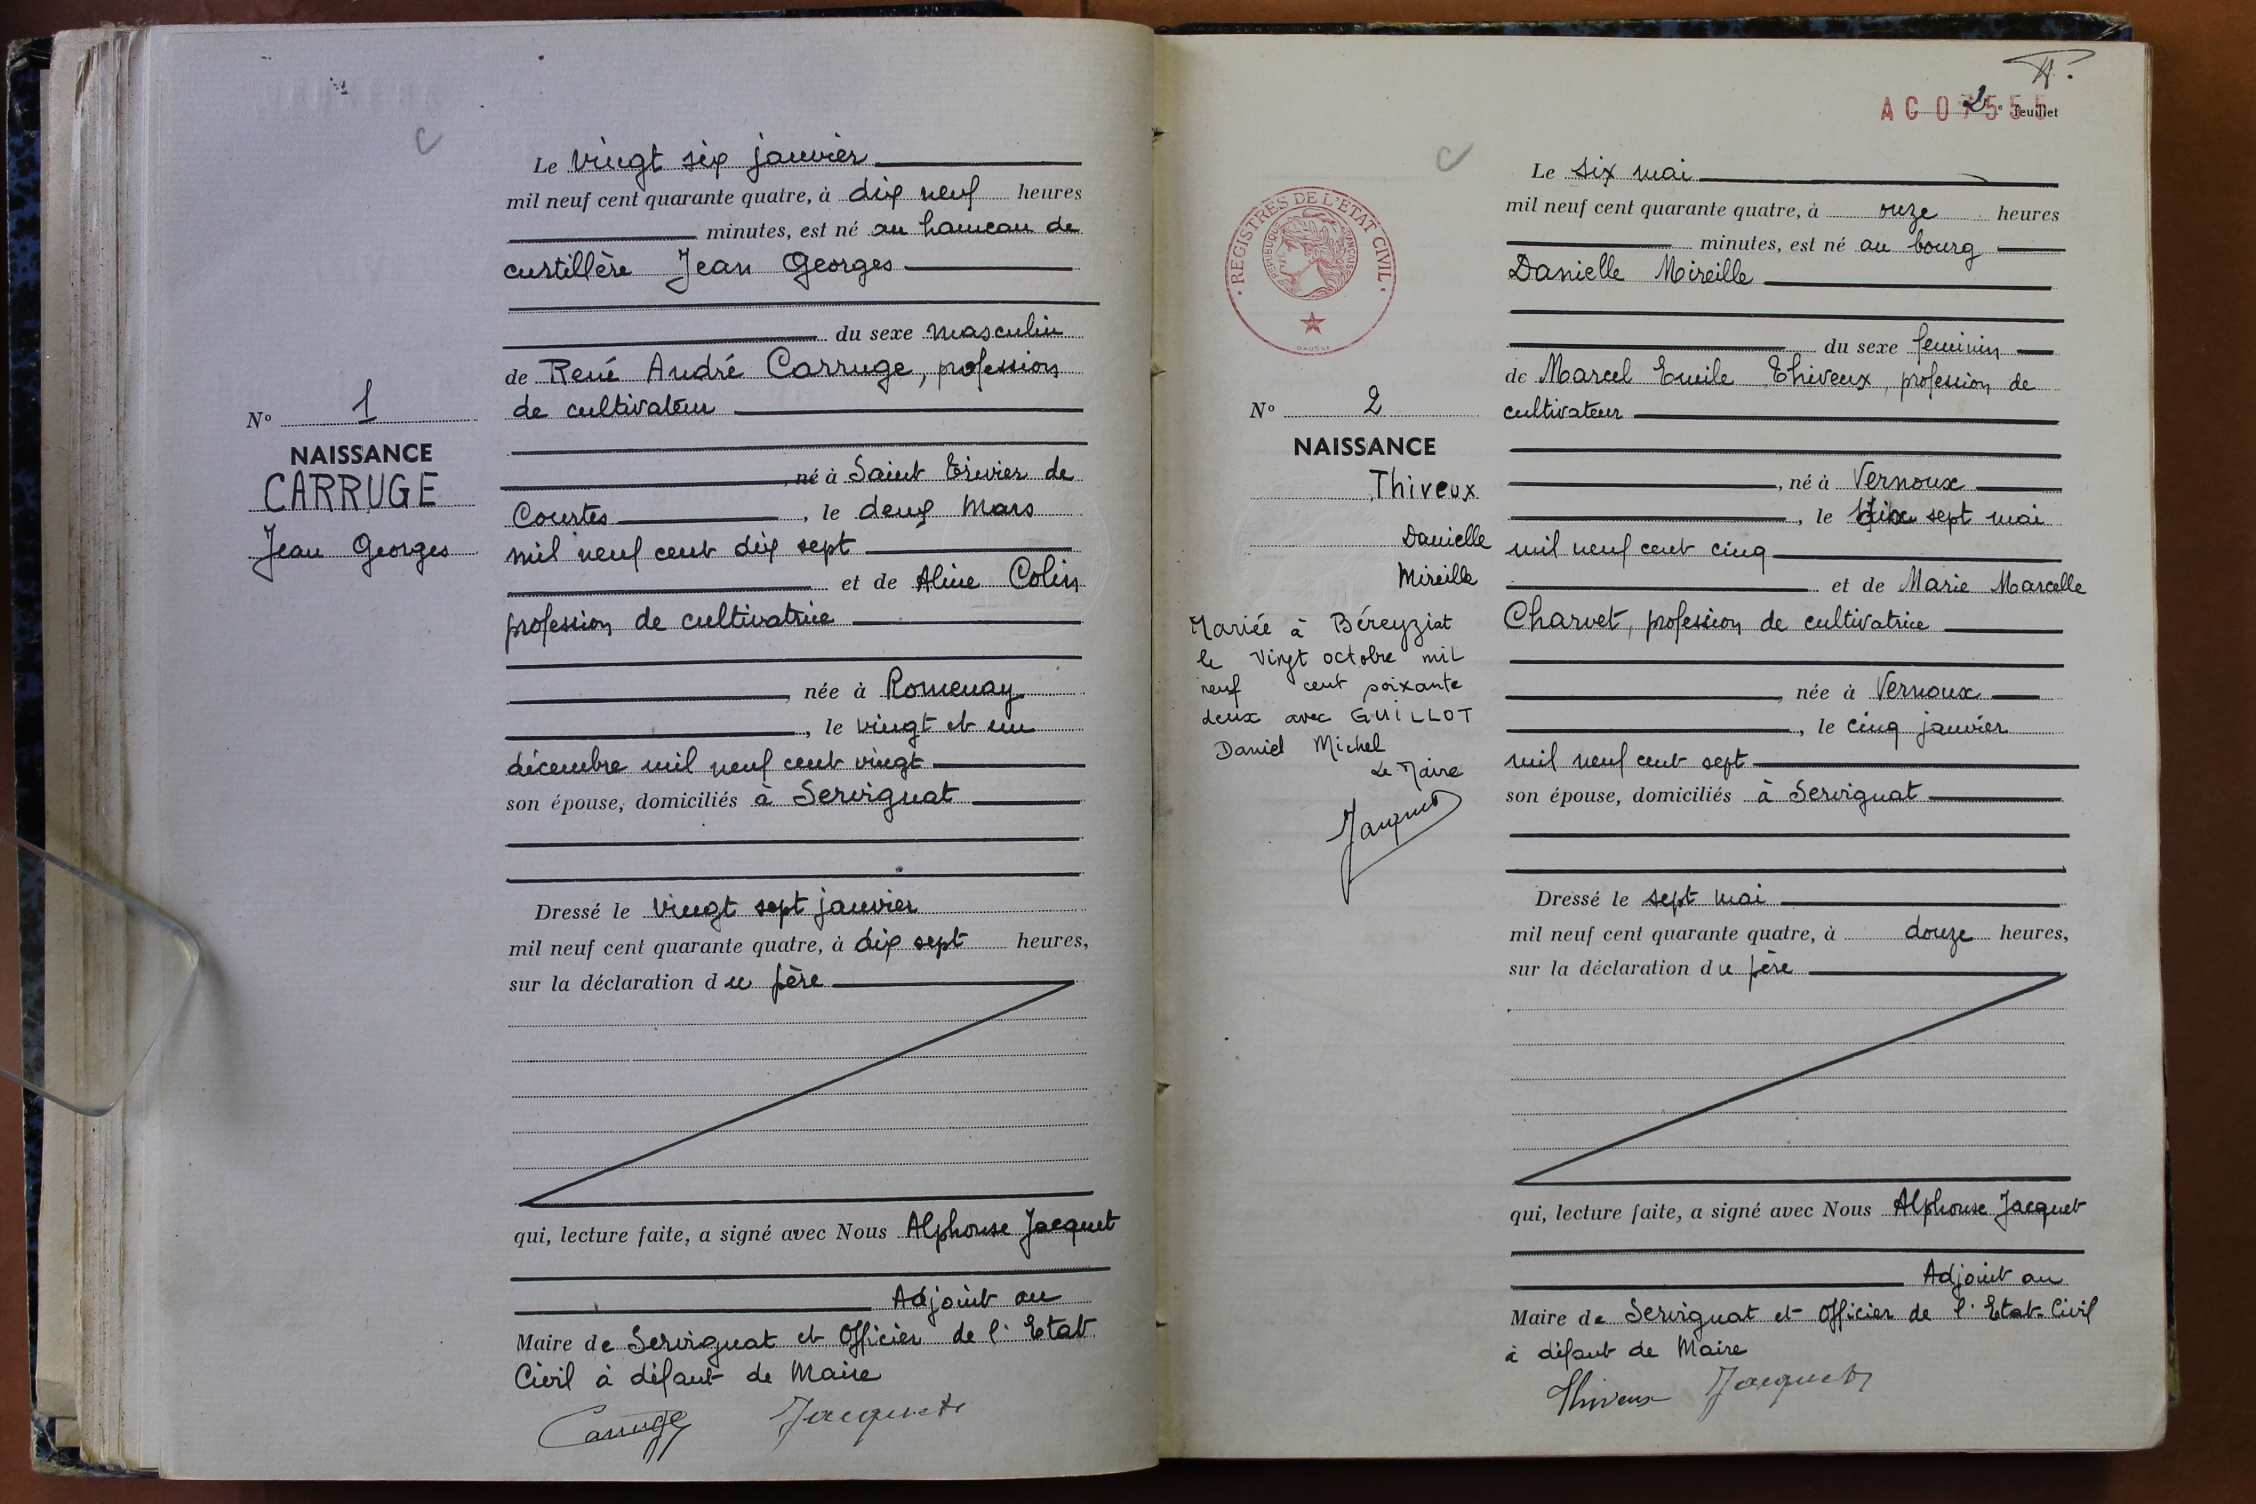 C
N° 1
NAISSANCE
CARRUGE
Jean Georges
Le vingt six janvier
mil neuf cent quarante quatre, à dix neuf heures
minutes, est né au hameau de
curtillère Jean Georges
du sexe masculin
de René André Carruge, profession
de cultivateur
, né à Saint Trivier de
Courtes , le deux Mars
mil neuf cent dix sept
et de Aline Colin
profession de cultivatrice
, née à Romenay
, le vingt et un
décembre mil neuf cent vingt
son épouse, domiciliés à Servignat
Dressé le vingt sept janvier
mil neuf cent quarante quatre, à dix sept heures,
sur la déclaration du père
qui, lecture faite, a signé avec Nous Alphonse Jacquet
Adjoint au
Maire de Servignat et Officier de l'Etat
Civil à défaut de Maire
Carruge Jacquet
2e feuillet
C
REGISTRES DE L'ETAT CIVIL
REPUBLIQUE FRANÇAISE
N° 2
NAISSANCE
Thiveux
Danielle
Mireille
Mariée à Béreyziat
le vingt octobre mil
neuf cent soixante
deux avec GUILLOT
Daniel Michel
Le Maire
Jacquet
Le six mai
mil neuf cent quarante quatre, à onze heures
minutes, est né au bourg
Danielle Mireille
du sexe feminin
de Marcel Emile Thiveux, profession de
cultivateur
, né à Vernoux
, le dix sept mai
mil neuf cent cinq
et de Marie Marcelle
Charvet, profession de cultivatrice
, née à Vernoux
, le cinq janvier
mil neuf cent sept
son épouse, domiciliés à Servignat
Dressé le sept mai
mil neuf cent quarante quatre, à douze heures,
sur la déclaration du père
qui, lecture faite, a signé avec Nous Alphonse Jacquet
Adjoint au
Maire de Servignat et Officier de l'Etat-Civil
à défaut de Maire
Thiveux Jacquet